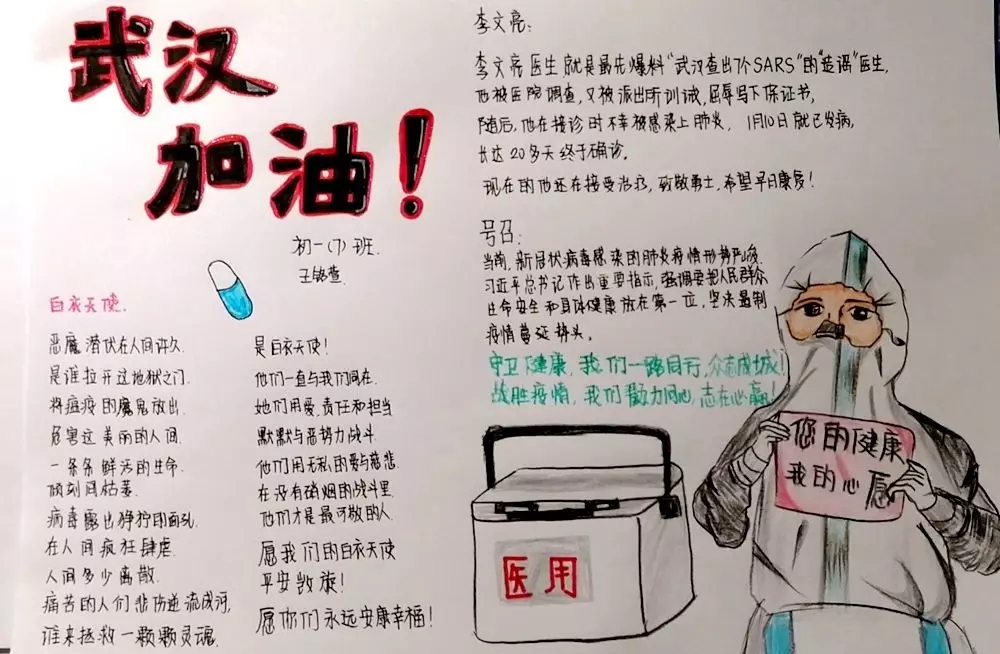 武汉
加油！
初一（7）班.
王
白衣天使.
恶魔潜伏在人间许久.
是谁拉开这地狱之门.
将瘟疫的魔鬼放出.
危害这美丽的人间.
一条条鲜活的生命.
顷刻间枯萎.
病毒露出狰狞的面孔.
在人间疯狂肆虐.
人间多少离散.
痛苦的人们悲伤逆流成河,
谁来拯救一颗颗灵魂.
是白衣天使！
他们一直与我们同在.
她们用爱,责任和担当
默默与恶势力战斗.
他们用无私的爱与慈悲.
在没有硝烟的战斗里.
他们才是最可敬的人.
愿我们的白衣天使
平安凯旋！
愿你们永远安康幸福！
李文亮:
李文亮医生就是最先爆料“武汉查出7个SARS”的“造谣”医生,
他被医院调查,又被派出所训诫,屈辱写下保证书,
随后,他在接诊时不幸被感染上肺炎, 1月10日就已发病,
长达20多天终于确诊.
现在的他还在接受治疗,致敬勇士,希望早日康复！
号召:
当前,新冠状病毒感染的肺炎疫情形势严峻.
习近平总书记作出重要指示,强调要把人民群众
生命安全和身体健康放在第一位,坚决遏制
疫情蔓延势头。
守卫健康,我们一路同行,众志成城！
战胜疫情,我们勠力同心,志在必赢！
医用
您的健康
我的心愿